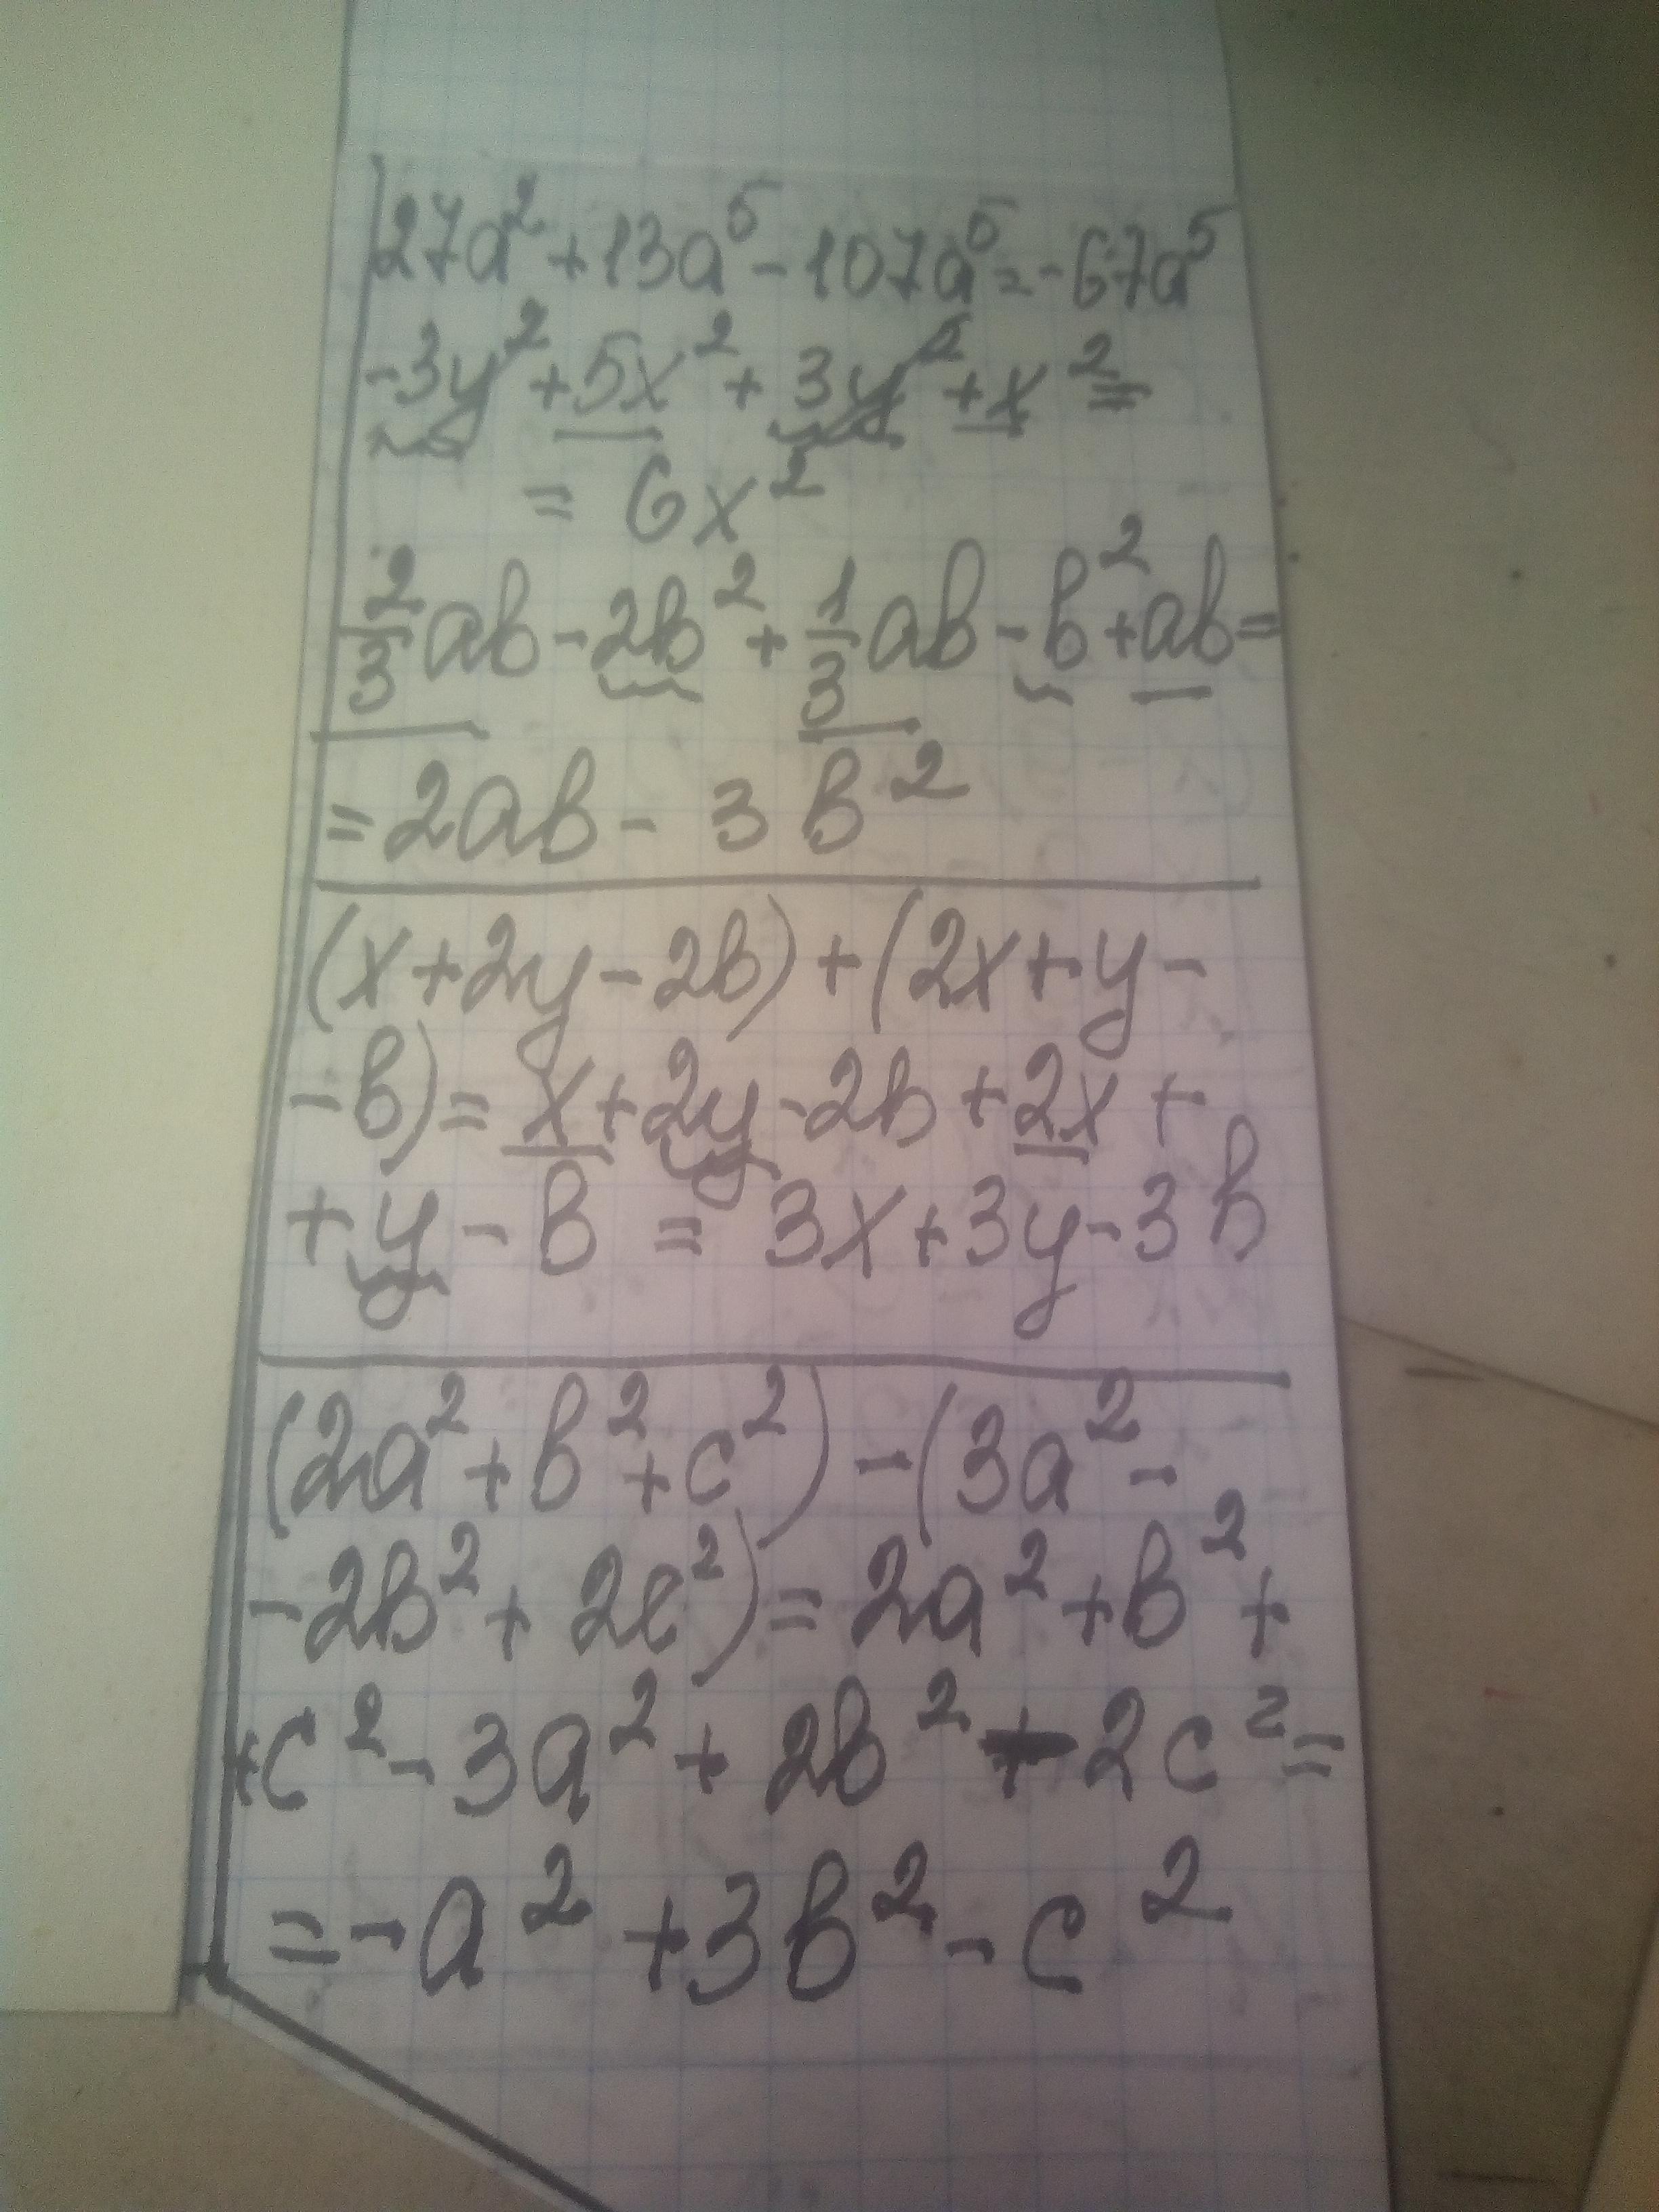 27a² + 13a⁵ - 107a⁵ = -67a⁵
-3y² + 5x² + 3y² + x² =
= 6x²
2/3 ab - 2b² + 1/3 ab - b² + ab =
= 2ab - 3b²
(x + 2y - 2b) + (2x + y -
- b) = x + 2y - 2b + 2x +
+ y - b = 3x + 3y - 3b
(2a² + b² + c²) - (3a² -
- 2b² + 2c²) = 2a² + b² +
+ c² - 3a² + 2b² - 2c² =
= -a² + 3b² - c²